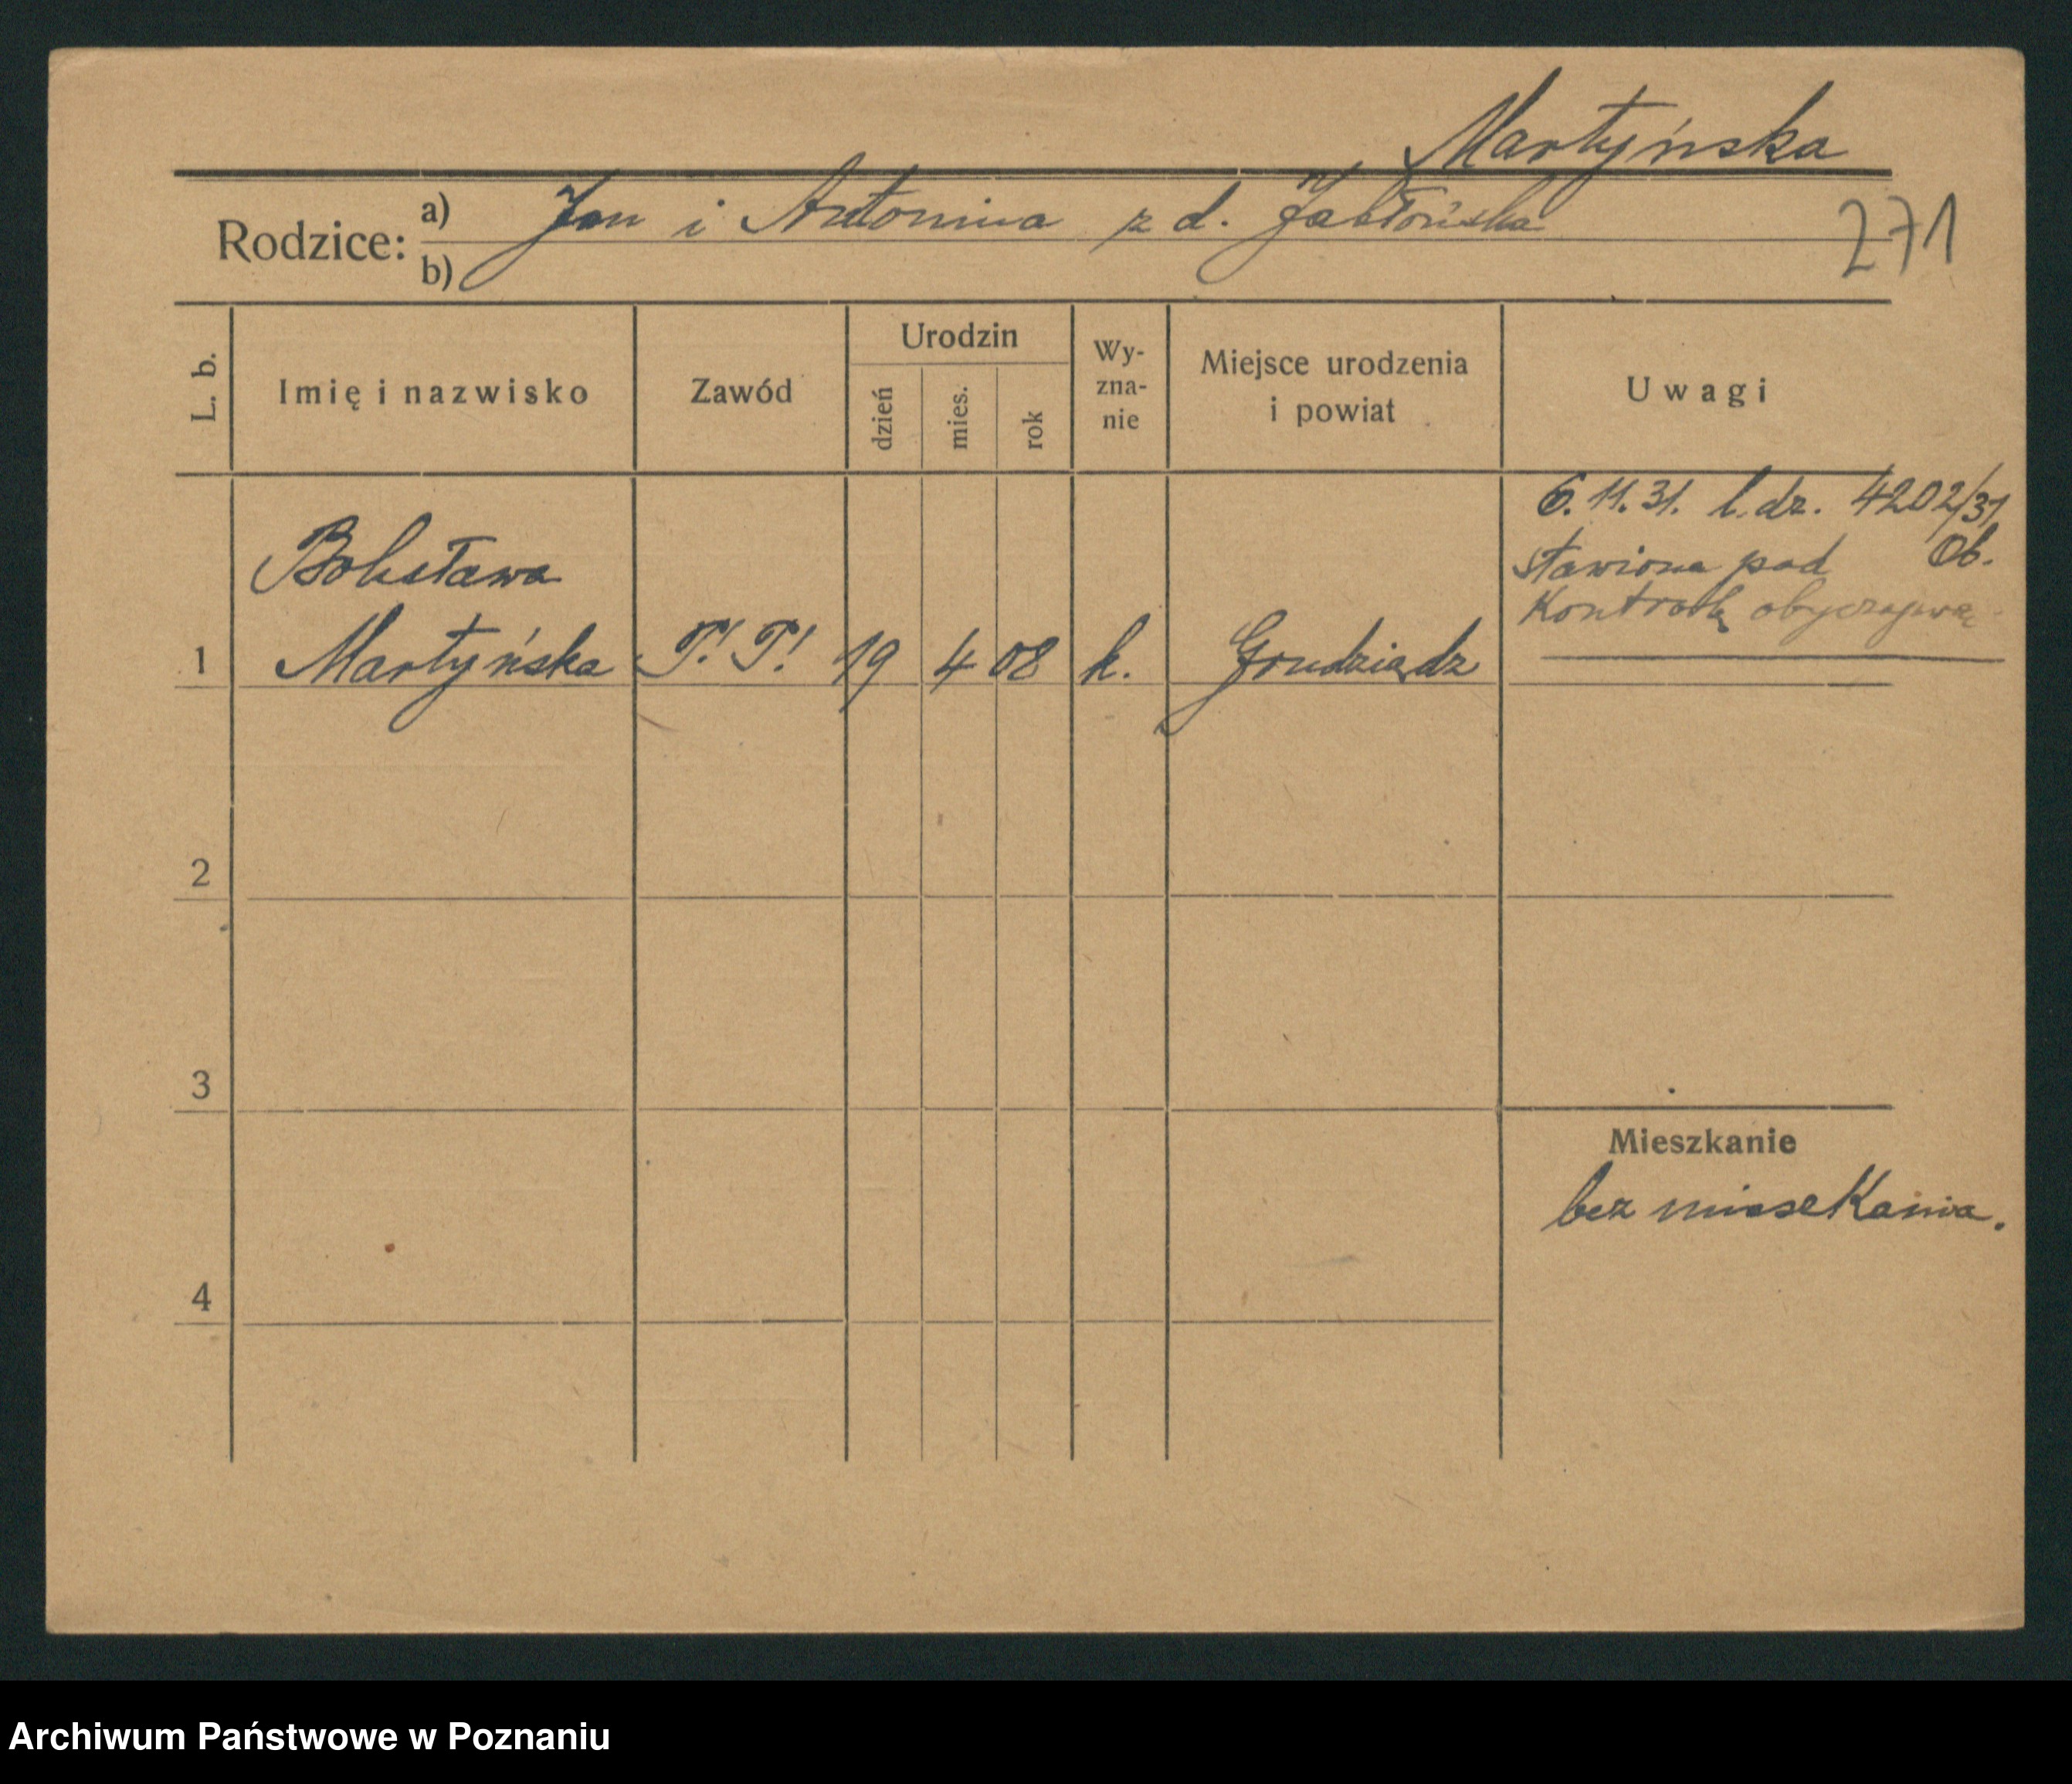 Martyńska
Rodzice: a) Jan i Antonina z d. Jabłońska
271
b)
L. b.
Imię i nazwisko
Zawód
Urodzin
dzień
mies.
rok
Wy-
zna-
nie
Miejsce urodzenia
i powiat
Uwagi
6. 11. 31. l. dz. 4202/31
Ob.
stawiona pod
Kontrolę obyczajową
Bolesława
1 Martyńska P! P! 19 4 08 k. Grudziądz
2
3
Mieszkanie
bez mieszkania.
4
Archiwum Państwowe w Poznaniu